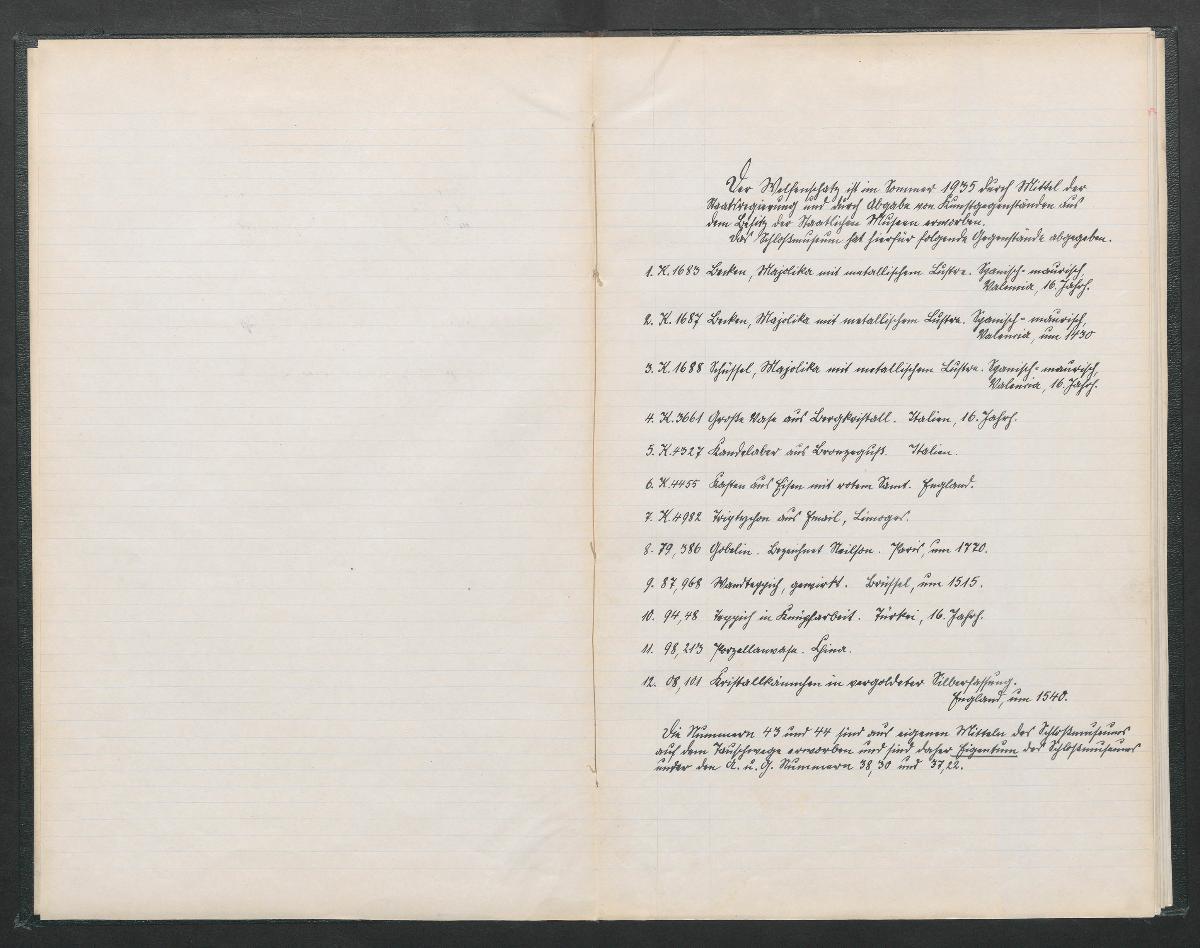 Der Welfenschatz ist im Sommer 1935 durch Mittel der
Staatsregierung und durch Abgabe von Kunstgegenständen aus
dem Besitz der Staatlichen Museen erworben.
Das Schloßmuseum hat hierfür folgende Gegenstände abgegeben.
1. K. 1683 Becken, Majolika mit metallischem Lustre. Spanisch-maurisch,
Valencia, 16. Jahrh.
2. K. 1687 Becken, Majolika mit metallischem Lustre. Spanisch-maurisch,
Valencia, um 1430
3. K. 1688 Schüssel, Majolika mit metallischem Lustre. Spanisch-maurisch,
Valencia, 16. Jahrh.
4. K. 3661 Große Vase aus Bergkristall. Italien, 16. Jahrh.
5. K. 4327 Kandelaber aus Bronzeguß. Italien.
6. K. 4455 Kasten aus Eisen mit rotem Samt. England.
7. K. 4982 Triptychon aus Email, Limoges.
8. 79,386 Gobelin. Bezeichnet Neilson. Paris, um 1770.
9. 87,968 Wandteppich, gewirkt. Brüssel, um 1515.
10. 94,48 Teppich in Knüpfarbeit. Türkei, 16. Jahrh.
11. 98,213 Porzellanvase. China.
12. 08,101 Kristallkännchen in vergoldeter Silberfassung.
England, um 1540.
Die Nummern 43 und 44 sind aus eigenen Mitteln des Schloßmuseums
auf dem Tauschwege erworben und sind daher Eigentum des Schloßmuseums
unter den A. u. G. Nummern 38,30 und 37,22.